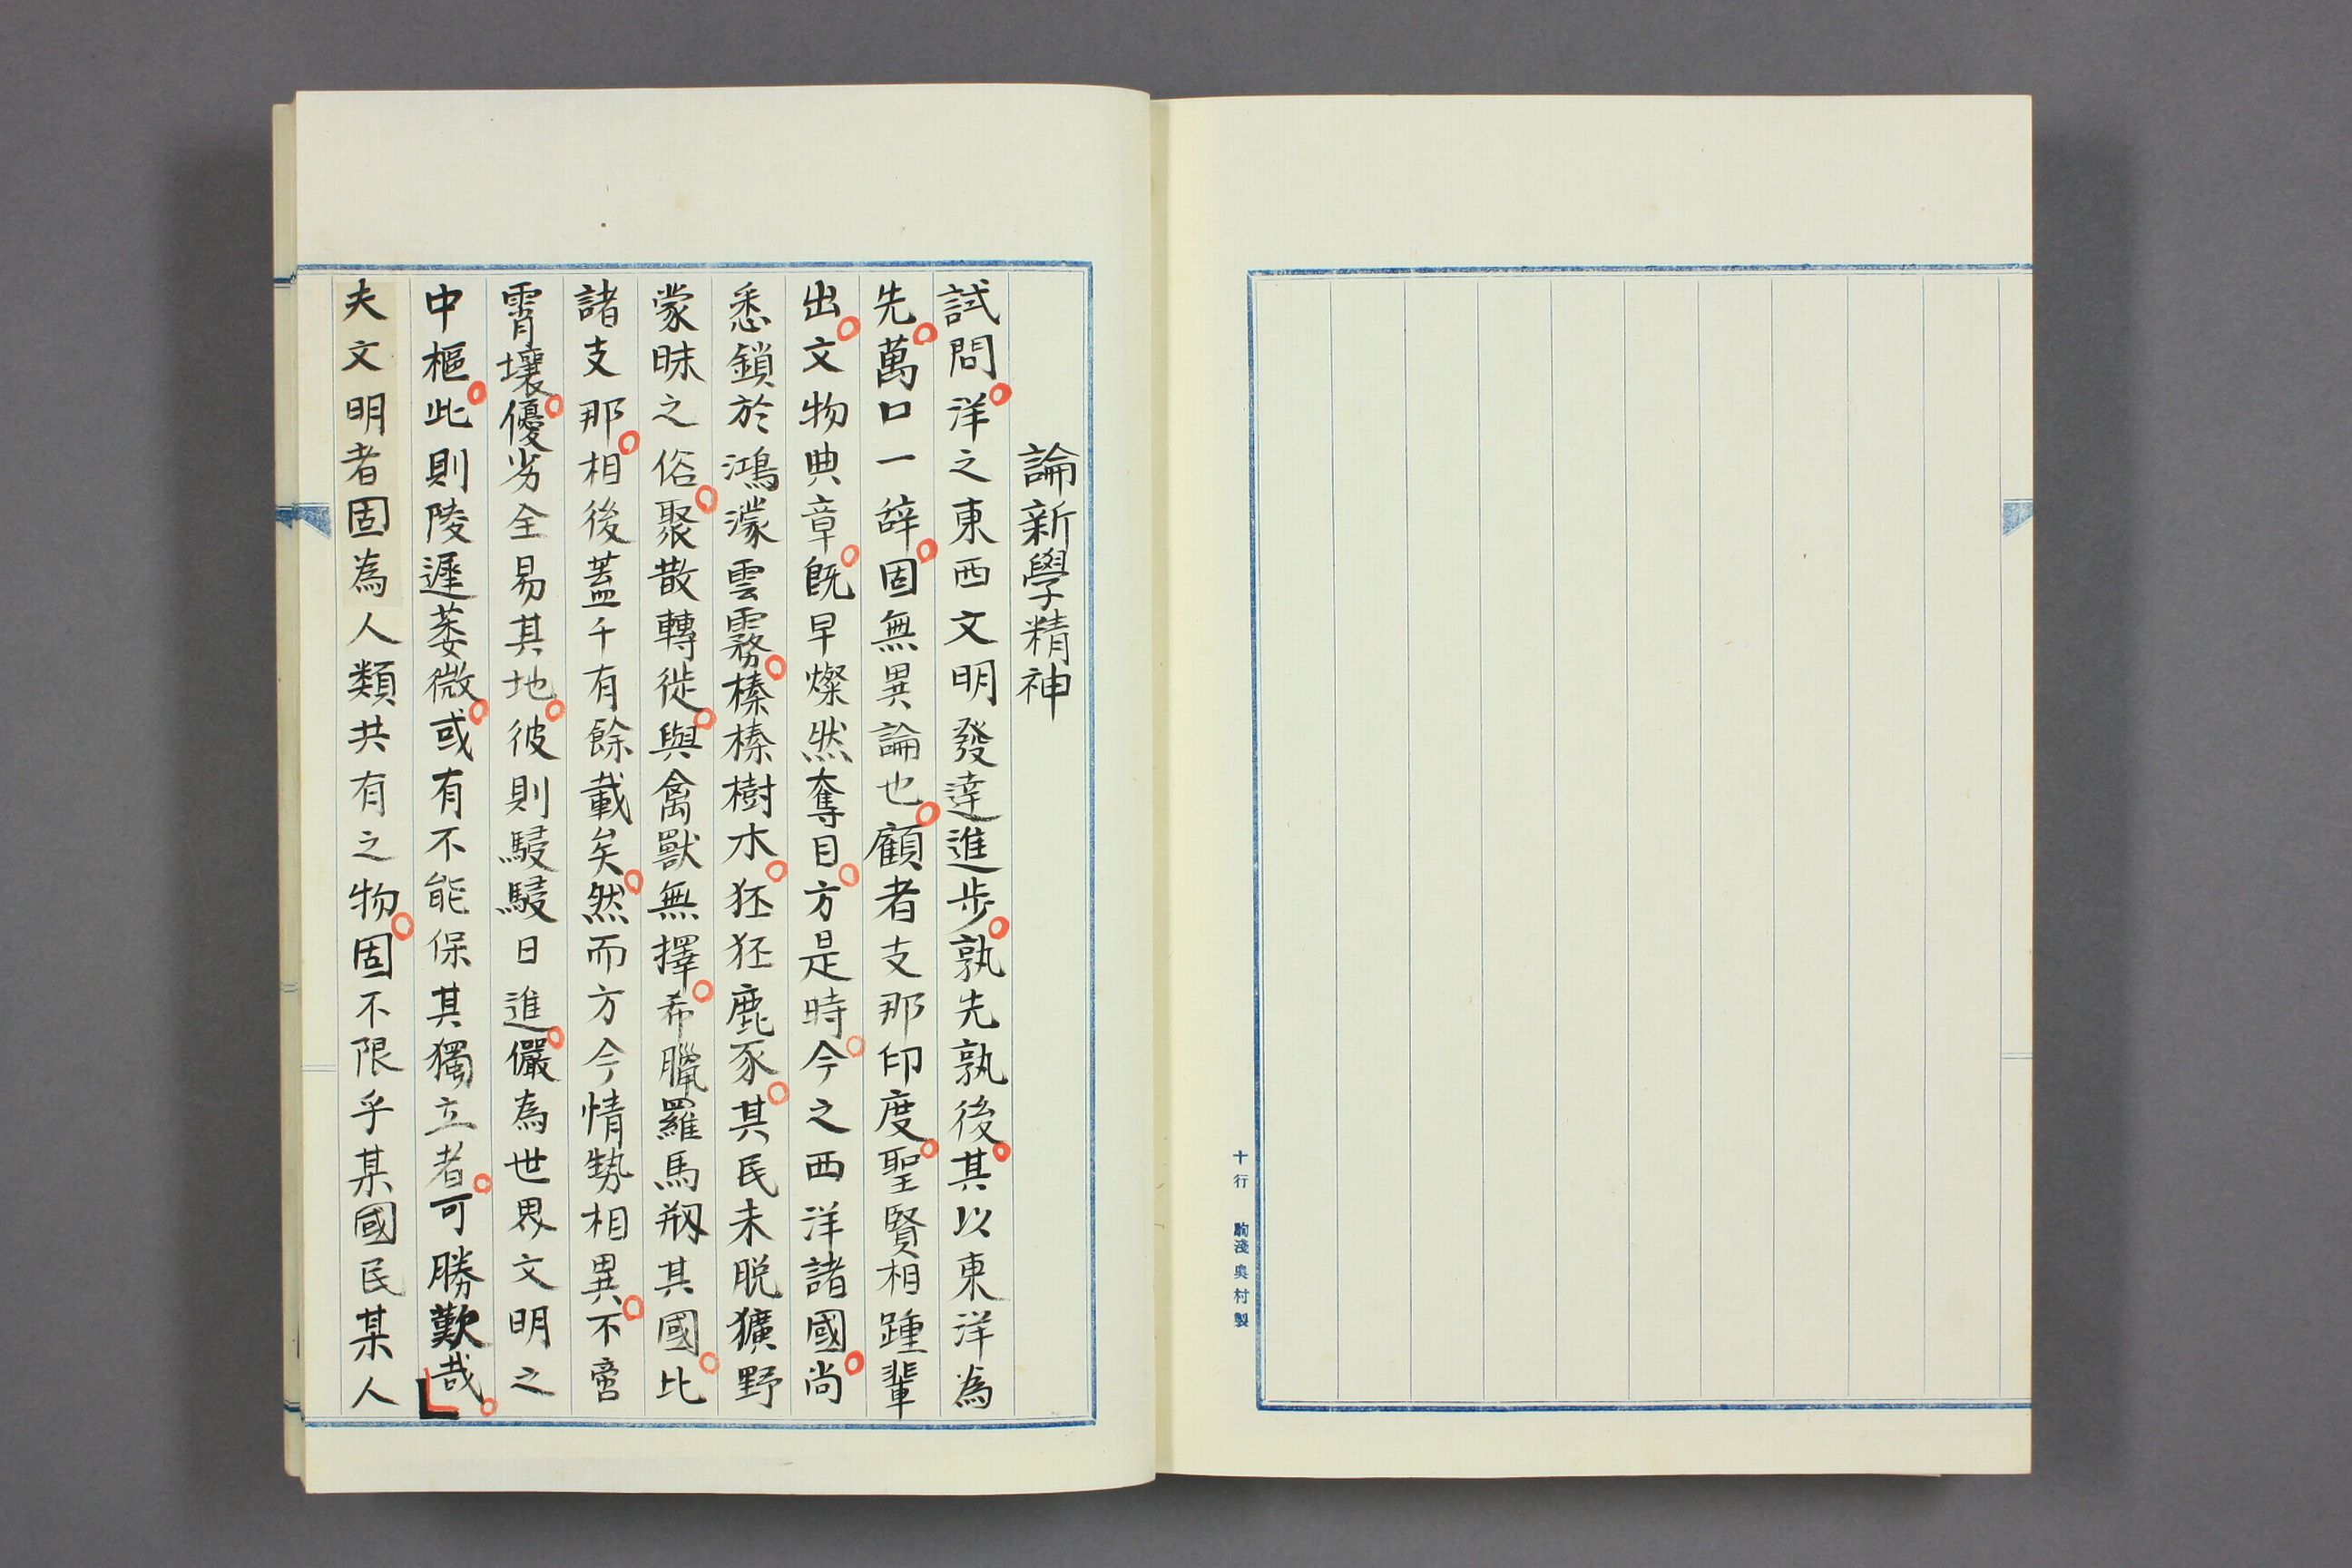 十行 駒淺奥村製
論新學精神
試問。洋之東西文明發達進步。孰先孰後。其以東洋為
先。萬口一辞。固無異論也。顧者支那印度。聖賢相踵輩
出。文物典章。既早燦然奪目。方是時。今之西洋諸國。尚
悉鎖於鴻濛雲霧。榛榛樹木。狉狉鹿豕。其民未脱獷野
蒙昧之俗。聚散轉徙。與禽獸無擇。希臘羅馬剏其國。比
諸支那。相後蓋千有餘載矣。然而方今情勢相異。不啻
霄壤。優劣全易其地。彼則駸駸日進。儼為世界文明之
中樞。此則陵遲萎微。或有不能保其獨立者。可勝歎哉。
夫文明者固為人類共有之物。固不限乎某國民某人